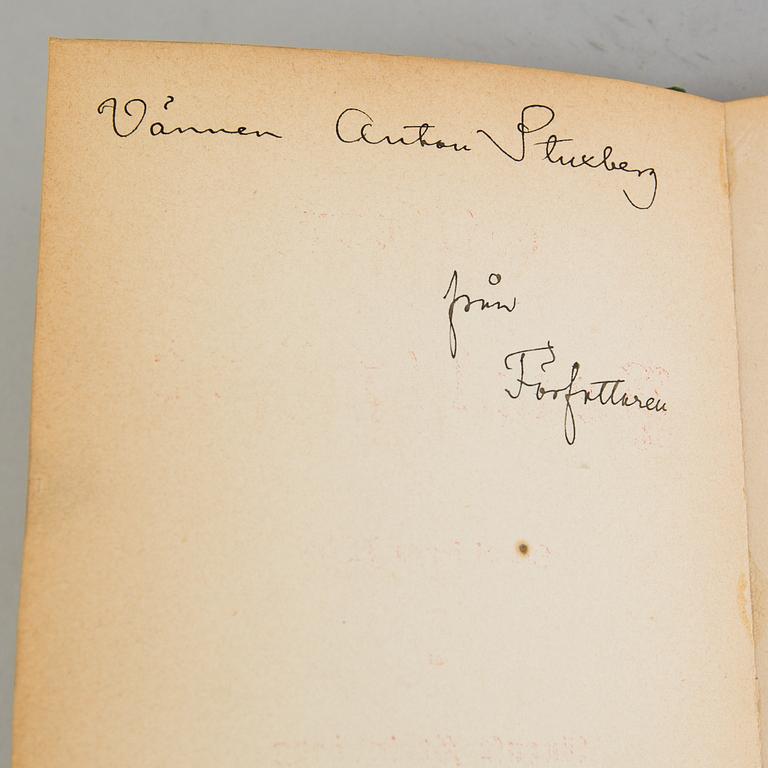 Vännen Anton Stuxberg
från
Författaren